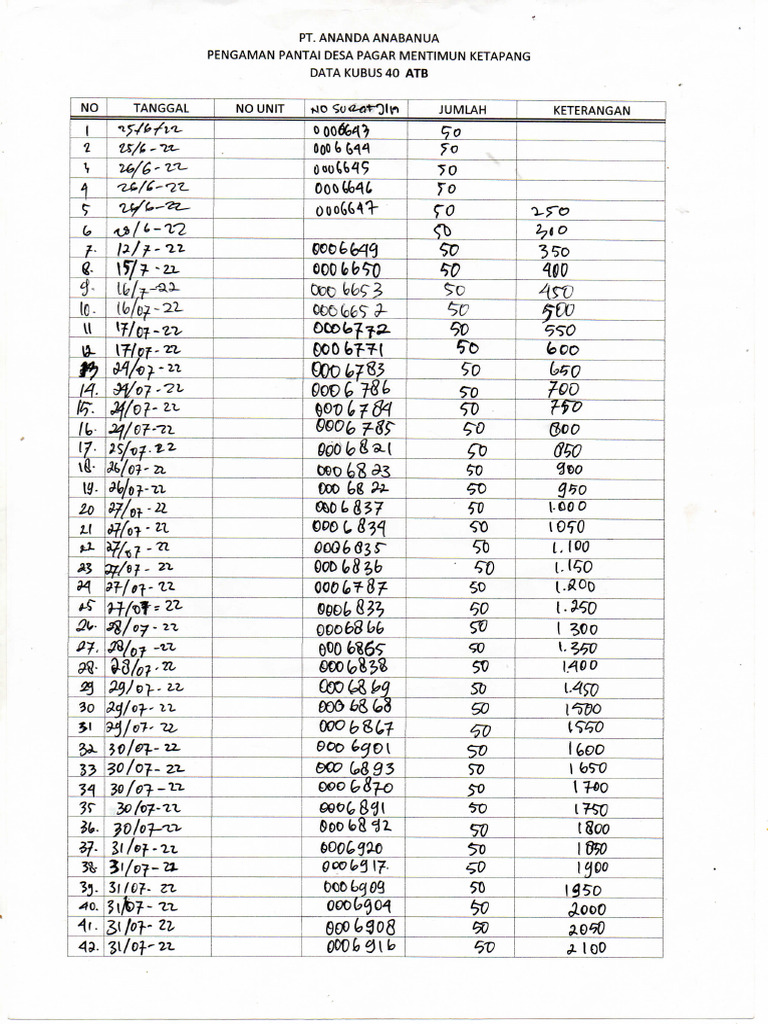 PT. ANANDA ANABANUA
PENGAMAN PANTAI DESA PAGAR MENTIMUN KETAPANG
DATA KUBUS 40 ATB
NO TANGGAL NO UNIT NO SURAT JLN JUMLAH KETERANGAN
1 25/6/22 0006643 50
2 25/6-22 0006644 50
3 26/6-22 0006645 50
4 26/6-22 0006646 50
5 26/6-22 0006647 50 250
6 /6-22 50 300
7. 12/7-22 0006649 50 350
8. 15/7-22 0006650 50 400
9. 16/7-22 0006653 50 450
10. 16/07-22 0006652 50 500
11 17/07-22 0006772 50 550
12 17/07-22 0006771 50 600
13 24/07-22 0006783 50 650
14. 24/07-22 0006786 50 700
15. 24/07-22 0006784 50 750
16. 24/07-22 0006785 50 800
17. 25/07-22 0006821 50 850
18. 26/07-22 0006823 50 900
19. 26/07-22 0006822 50 950
20 27/07-22 0006837 50 1.000
21 27/07-22 0006834 50 1050
22 27/07-22 0006835 50 1.100
23 27/07-22 0006836 50 1.150
24 27/07-22 0006787 50 1.200
25 27/07=22 0006833 50 1.250
26. 28/07-22 0006866 50 1300
27. 28/07-22 0006865 50 1.350
28. 28/07-22 0006838 50 1.400
29 29/07-22 0006869 50 1.450
30 29/07-22 0006868 50 1500
31 29/07-22 0006867 50 1550
32 30/07-22 0006901 50 1600
33 30/07-22 0006893 50 1650
34 30/07-22 0006870 50 1700
35 30/07-22 0006891 50 1750
36. 30/07-22 0006892 50 1800
37. 31/07-22 0006920 50 1850
38 31/07-22 0006917. 50 1900
39. 31/07-22 0006909 50 1950
40. 31/07-22 0006904 50 2000
41. 31/07-22 0006908 50 2050
42. 31/07-22 0006916 50 2100